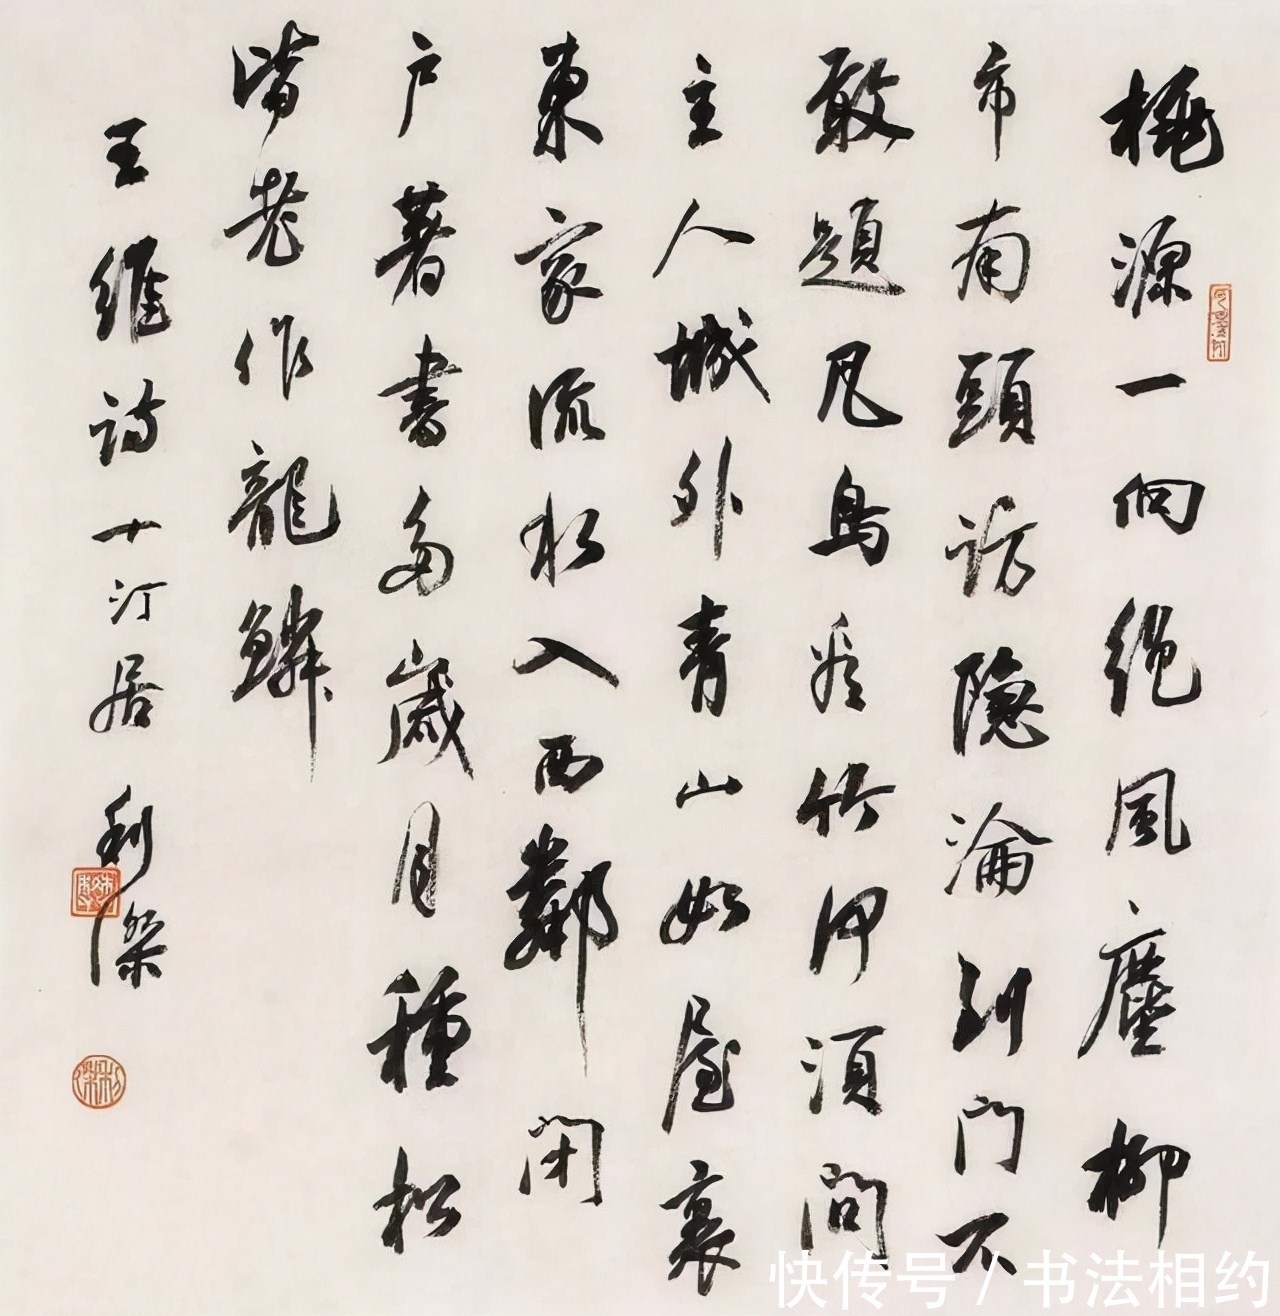 桃源一向絕風塵柳
市南頭訪隱淪到門不
敢題凡鳥看竹何須問
主人城外青山如屋裏
東家流水入西鄰閉
户著書多歲月種松
皆老作龍鱗
王維詩十汀居利傑
快传号 / 书法相约